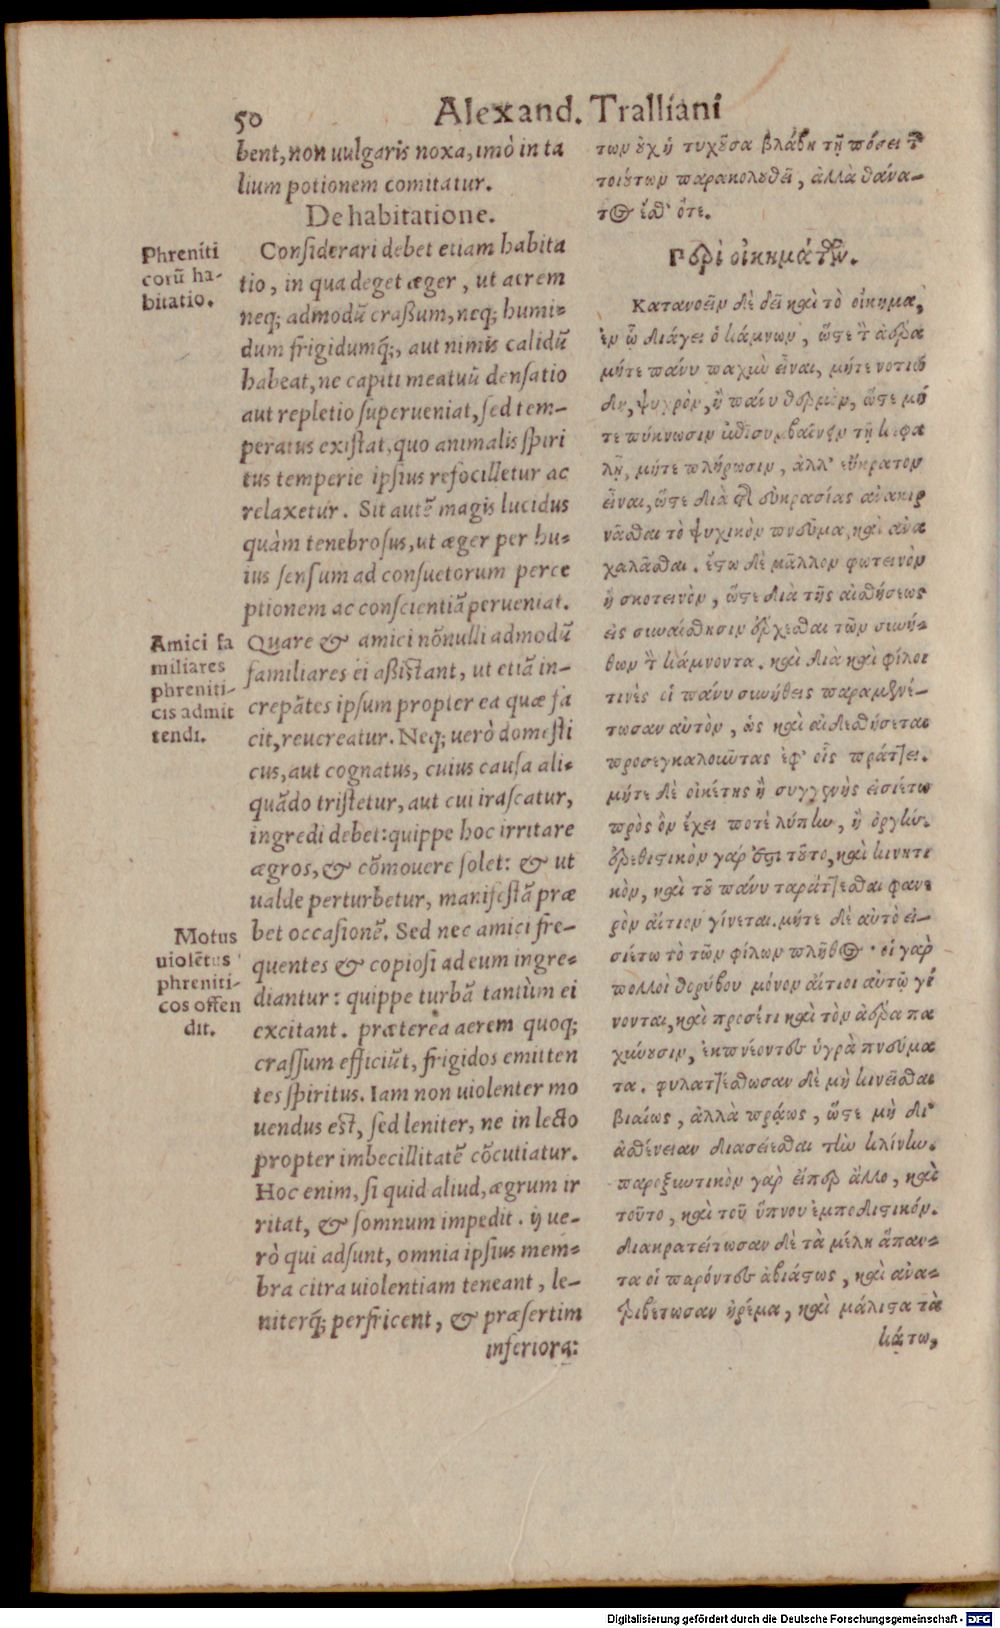 50
Alexand. Tralliani
bent, non uulgaris noxa, imò in ta
lium potionem comitatur.
De habitatione.
Phreniti
corũ ha-
bitatio.
Considerari debet etiam habita
tio, in qua deget æger, ut aerem
neq; admodũ craßum, neq; humi=
dum frigidumq́;, aut nimis calidũ
habeat, ne capiti meatuũ densatio
aut repletio superueniat, sed tem-
peratus existat, quo animalis spiri
tus temperie ipsius refocilletur ac
relaxetur. Sit autẽ magis lucidus
quàm tenebrosus, ut æger per hu=
ius sensum ad consuetorum perce
ptionem ac conscientiã perueniat.
Amici fa
miliares
phreniti-
cis admit
tendi.
Quare & amici nõnulli admodũ
familiares ei aßistant, ut etiã in-
crepãtes ipsum propter ea quæ fa
cit, reuereatur. Neq; uerò domesti
cus, aut cognatus, cuius causa ali=
quãdo tristetur, aut cui irascatur,
ingredi debet: quippe hoc irritare
ægros, & cõmouere solet: & ut
ualde perturbetur, manifestã præ
bet occasionẽ. Sed nec amici fre-
Motus
uiolẽtus
phreniti-
cos offen
dit.
quentes & copiosi ad eum ingre=
diantur: quippe turbã tantùm ei
excitant. præterea aerem quoq;
crassum efficiũt, frigidos emitten
tes spiritus. Iam non uiolenter mo
uendus est, sed leniter, ne in lecto
propter imbecillitatẽ cõcutiatur.
Hoc enim, si quid aliud, ægrum ir
ritat, & somnum impedit. ij ue-
rò qui adsunt, omnia ipsius mem=
bra citra uiolentiam teneant, le-
niterq́; perfricent, & præsertim
inferiora:
των οὐχ ἡ τυχοῦσα βλάβη τῇ πόσει τ̃
τοιούτων παρακολουθεῖ, ἀλλὰ θάνα-
τος ἔσθ' ὅτε.
Περὶ οἰκημάτων.
Κατανοεῖν δὲ δεῖ καὶ τὸ οἴκημα,
ἐν ᾧ διάγει ὁ κάμνων, ὥστε τ̃ ἀέρα
μήτε πάνυ παχὺν εἶναι, μήτε νοτιώ
δη, ψυχρὸν, ἢ πάνυ θερμὸν, ὥστε μή
τε πύκνωσιν ἐπισυμβαίνειν τῇ κεφα
λῇ, μήτε πλήρωσιν, ἀλλ' εὔκρατον
εἶναι, ὥστε διὰ τῆς εὐκρασίας ἀνακιρ
νᾶσθαι τὸ ψυχικὸν πνεῦμα, καὶ ἀνα
χαλᾶσθαι. ἔστω δὲ μᾶλλον φωτεινὸν
ἢ σκοτεινὸν, ὥστε διὰ τῆς αἰσθήσεως
εἰς συναίσθησιν ἔρχεσθαι τῶν συνή-
θων τ̃ κάμνοντα. καὶ διὰ καὶ φίλοι
τινὲς οἱ πάνυ συνήθεις παραμενέ-
τωσαν αὐτὸν, ὡς καὶ αἰδεσθήσεται
προσεγκαλοιῶτας ἐφ' οἷς πράττει.
μήτε δὲ οἰκέτης ἢ συγγενὴς εἰσιέτω
πρὸς ὃν ἔχει ποτὲ λύπην, ἢ ὀργήν.
ἐρεθιστικὸν γάρ ἐστι τοῦτο, καὶ κινητι
κὸν, καὶ τοῦ πάνυ ταράττεσθαι φανε
ρὸν αἴτιον γίνεται. μήτε δὲ αὐτὸ εἰ-
σίετω τὸ τῶν φίλων πλῆθος. οἱ γὰρ
πολλοὶ θορύβου μόνον αἴτιοι αὐτῷ γί
νονται, καὶ προσέτι καὶ τὸν ἀέρα πα
χύνουσιν, ἐκπνέοντες ὑγρὰ πνεύμα
τα. φυλαττέσθωσαν δὲ μὴ κινεῖσθαι
βιαίως, ἀλλὰ πράως, ὥστε μὴ δι'
ἀσθένειαν διασείεσθαι τὴν κλίνην.
παροξυντικὸν γὰρ εἴπερ ἄλλο, καὶ
τοῦτο, καὶ τοῦ ὕπνου ἐμποδιστικόν.
διακρατείτωσαν δὲ τὰ μέλη ἅπαν=
τα οἱ παρόντες ἀβιάστως, καὶ ἀνα=
τριβέτωσαν ἠρέμα, καὶ μάλιστα τὰ
κάτω,
Digitalisierung gefördert durch die Deutsche Forschungsgemeinschaft - DFG